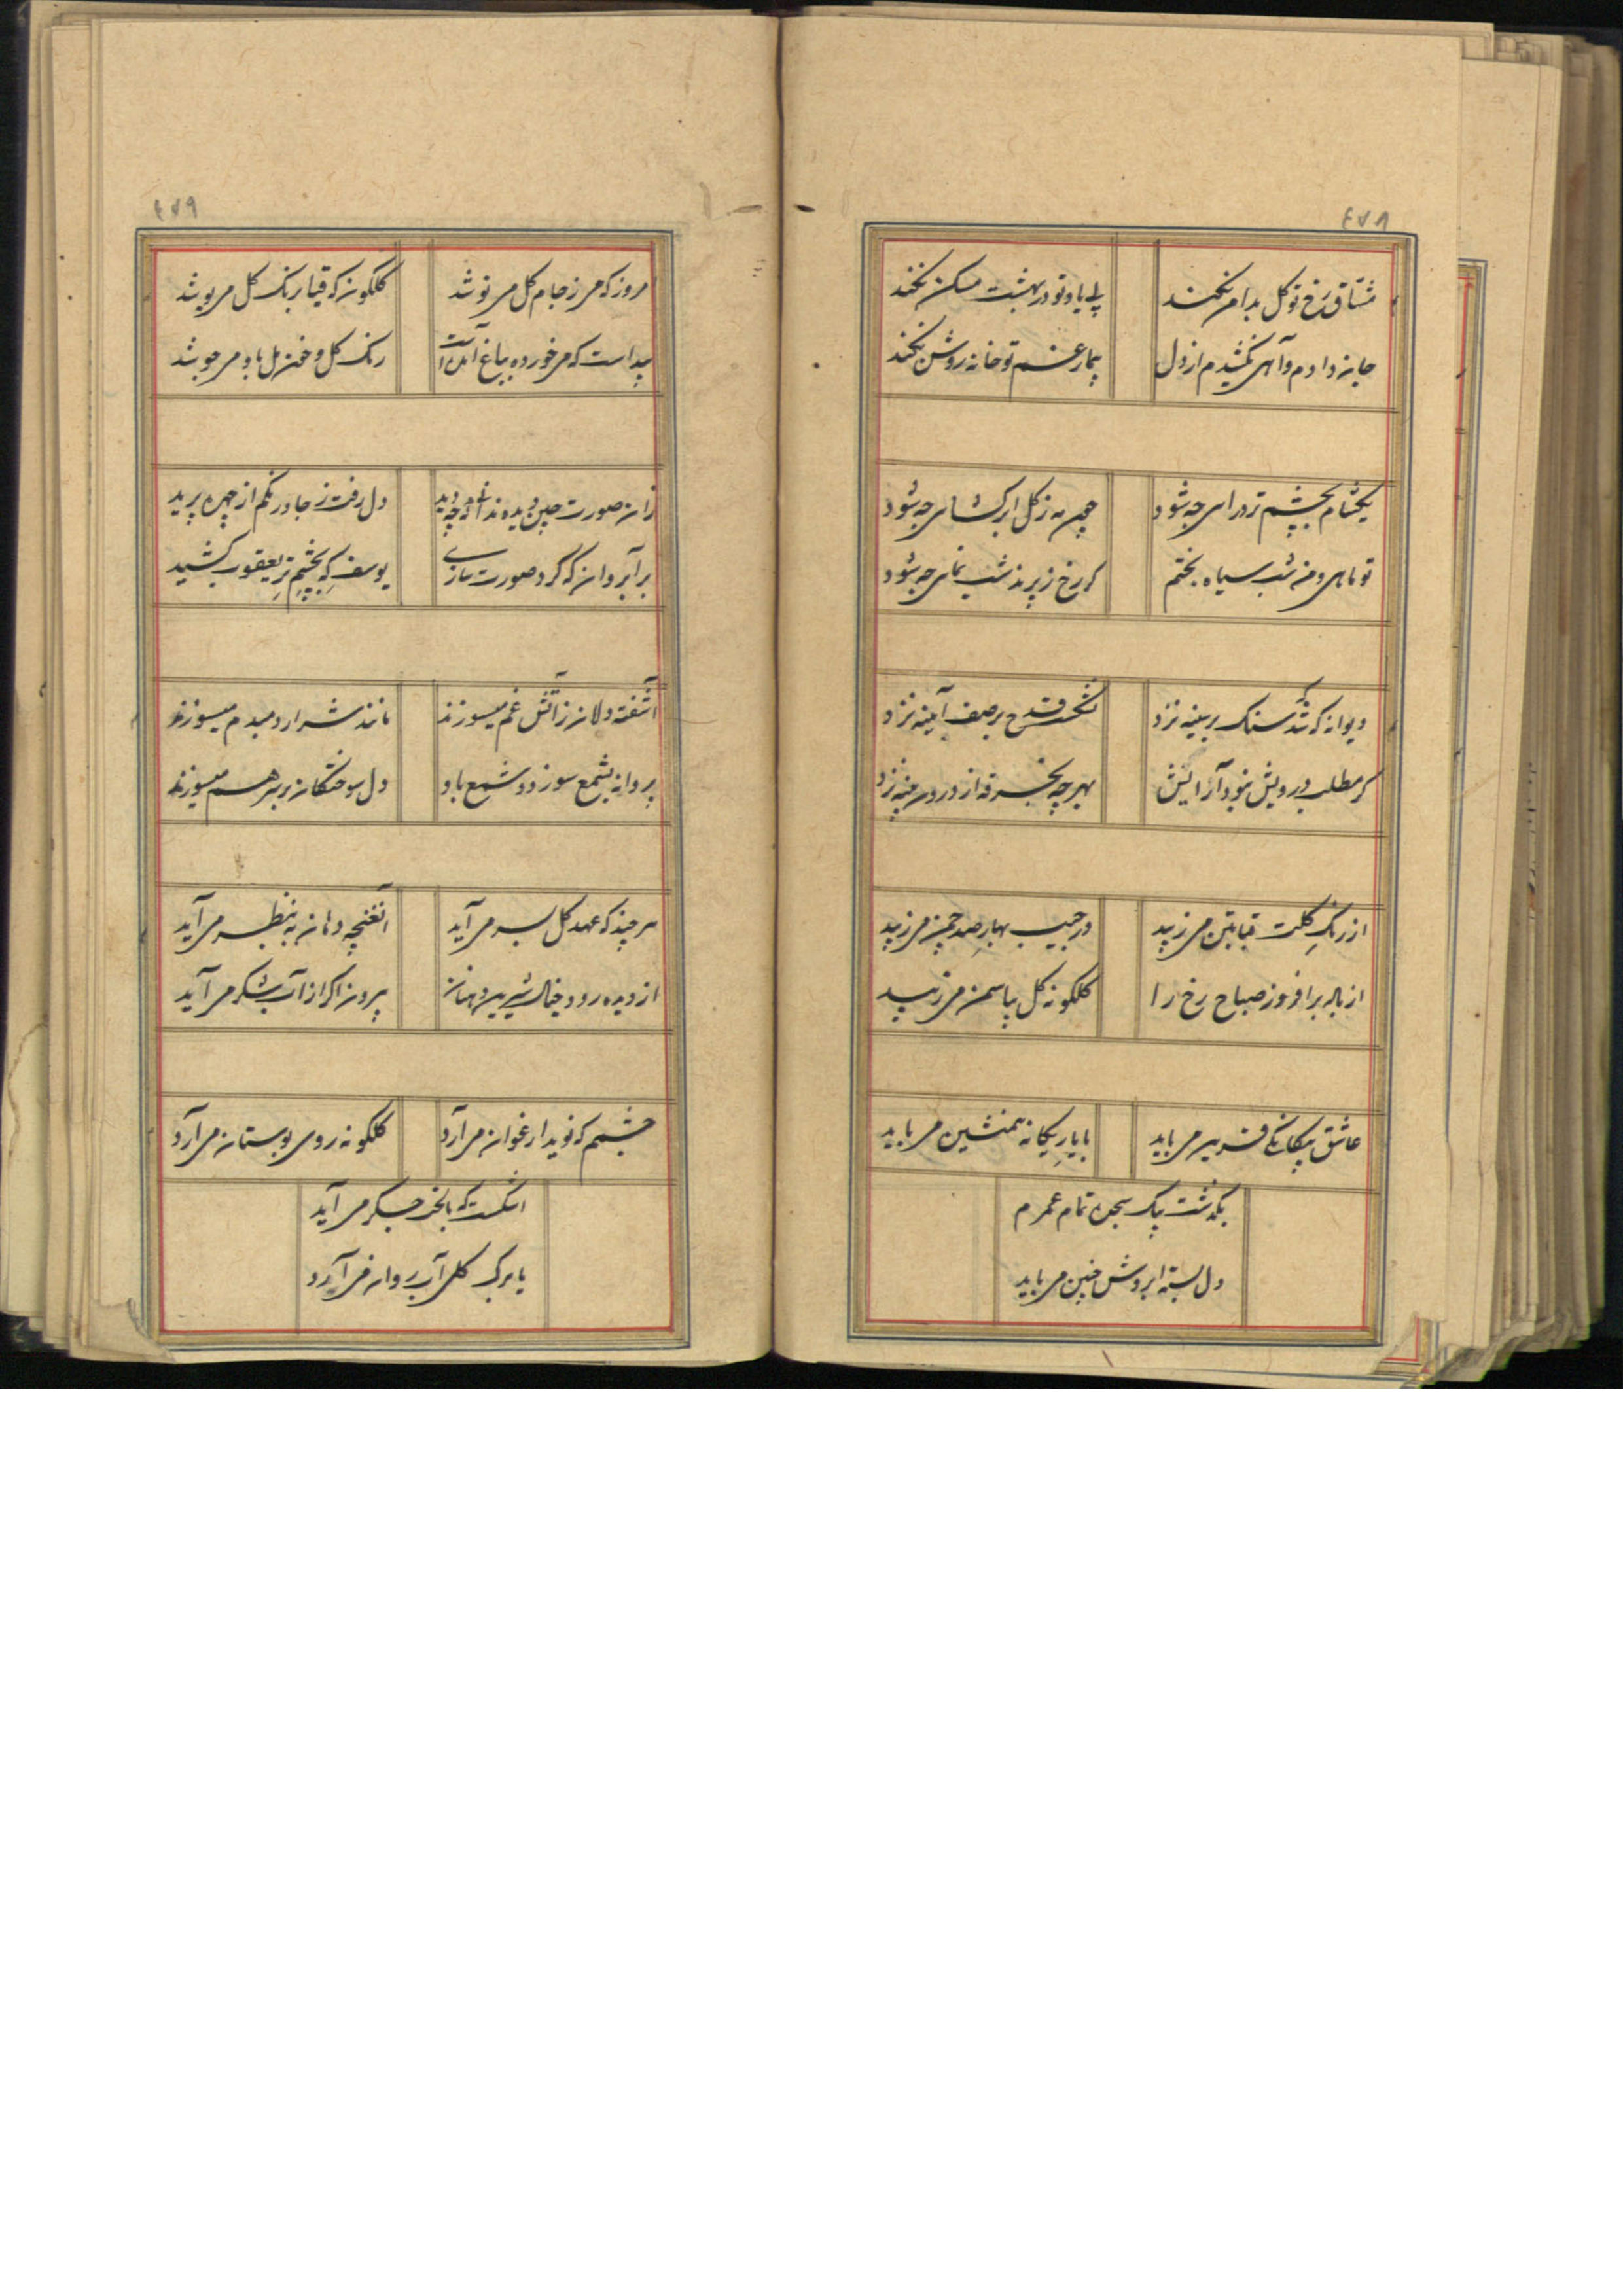 ۴۷۸
مشتاق رخ تو گل بدامن نکند
بی یاد تو در بهشت مسکن نکند
جان دادم و آهی نکشیدم از دل
بیمار غم تو خانه روشن نکند
یکشام بچشم تر درای چه شود
چون مه ز گل ابر گشای چه شود
تو ماهی و من شب سیاه بختم
گر رخ ز پرند شب نمای چه شود
دیوانه که شد سنک بر سینه نزد
نشکست قدح بر صف آیینه نزد
گر مطلب درویش نبود آرایش
بهر چه بخرقه از درون پنبه نزد
از رنک گلت قبا بتن می زیبد
در جیب بهار صد چمن می زیبد
از باله برافروز صباح رخ را
کلکونه گل بیاسمن می زیبد
عاشق بیکانکی قرین می باید
با یار یکانه همنشین می باید
بگذشت بیک سجده تمام عمرم
دل بسته ابروش چنین می باید
۴۷۹
مروز که می ز جام گل می نوشد
گلگون که قبا برنک گل می پوشد
پیداست که می خورده بباغ آمده است
رنک گل و خون مل باو می جوشد
زان صورت چین دیده ندانم چه دید
دل رفت ز جا و رنگم از چهره پرید
بر آب روان که کرد صورت سازی
یوسف که بچشم تر یعقوب کشید
آشفته دلان ز آتش غم میسوزند
مانند شرار دمبدم میسوزند
پروانه بشمع سوزد و شمع باو
دل سوختکان بر سر هم میسوزند
هر چند که عهد گل بسر می آید
آن غنچه دهان به نظر می آید
از دیده رود خیال شیرین دهنان
بیرون اکر از آب شکر می آید
چشمم که نوید ارغوان می آرد
کلکونه روی بوستان می آرد
اشکست که با لخت جگر می آید
یا برک گلی آب روان می آرد